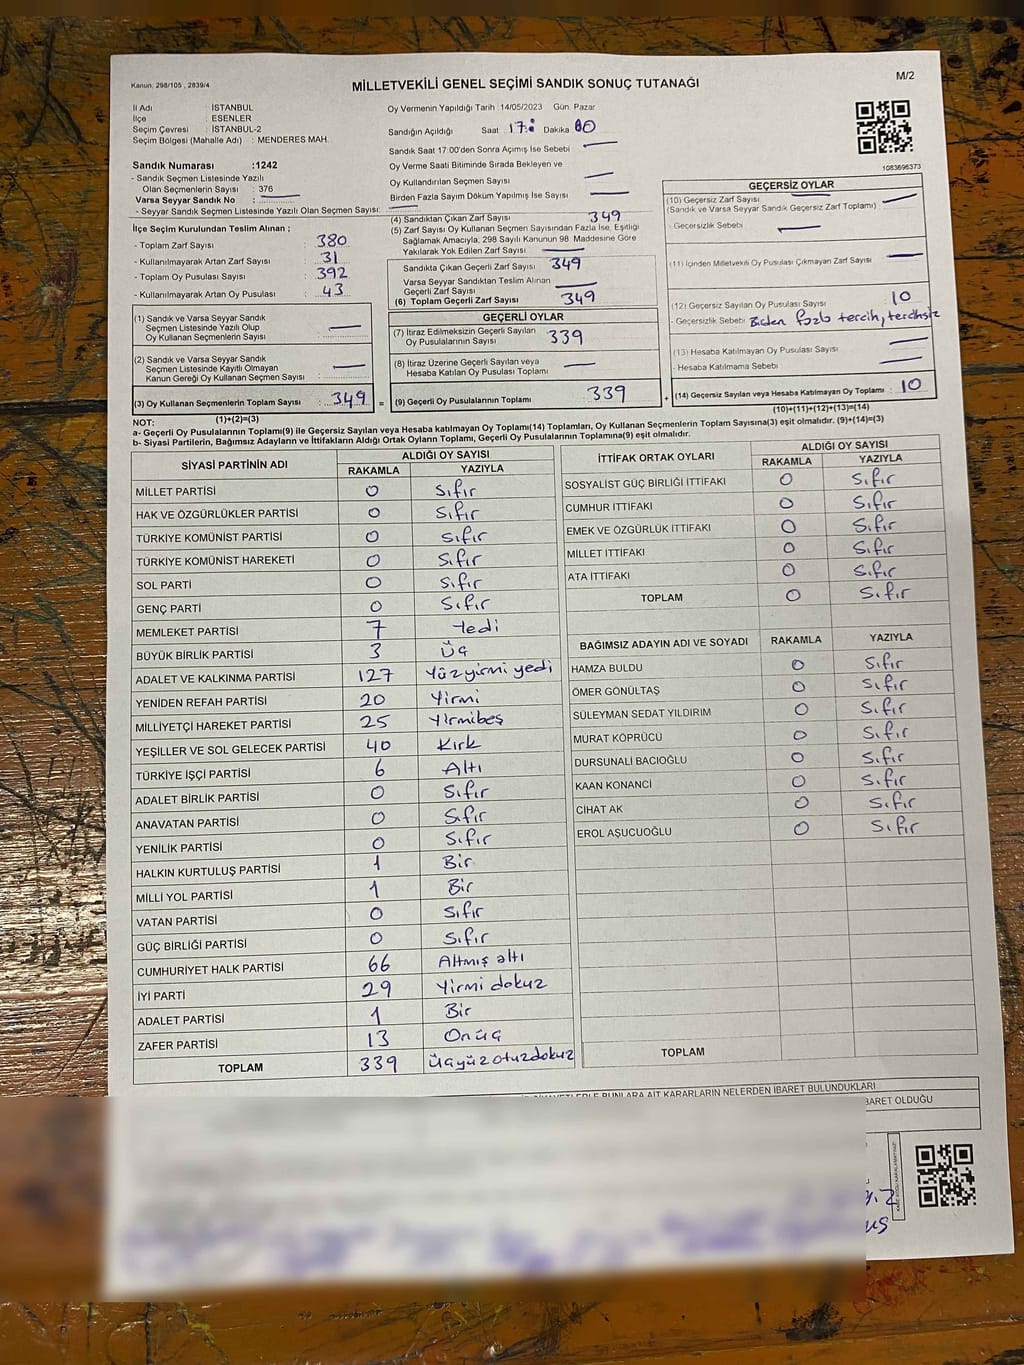 Kanun: 298/105 , 2839/4
MİLLETVEKİLİ GENEL SEÇİMİ SANDIK SONUÇ TUTANAĞI
M/2
İl Adı : İSTANBUL
İlçe : ESENLER
Seçim Çevresi : İSTANBUL-2
Seçim Bölgesi (Mahalle Adı) : MENDERES MAH.
Sandık Numarası :1242
- Sandık Seçmen Listesinde Yazılı
Olan Seçmenlerin Sayısı : 376
Varsa Seyyar Sandık No :
- Seyyar Sandık Seçmen Listesinde Yazılı Olan Seçmen Sayısı:
İlçe Seçim Kurulundan Teslim Alınan ;
- Toplam Zarf Sayısı : 380
- Kullanılmayarak Artan Zarf Sayısı : 31
- Toplam Oy Pusulası Sayısı : 392
- Kullanılmayarak Artan Oy Pusulası : 43
(1) Sandık ve Varsa Seyyar Sandık
Seçmen Listesinde Yazılı Olup
Oy Kullanan Seçmenlerin Sayısı :
(2) Sandık ve Varsa Seyyar Sandık
Seçmen Listesinde Kayıtlı Olmayan
Kanun Gereği Oy Kullanan Seçmen Sayısı :
(3) Oy Kullanan Seçmenlerin Toplam Sayısı : 349 =
(1)+(2)=(3)
Oy Vermenin Yapıldığı Tarih :14/05/2023 Gün: Pazar
Sandığın Açıldığı Saat 17: Dakika 00
Sandık Saat 17:00'den Sonra Açımış İse Sebebi
Oy Verme Saati Bitiminde Sırada Bekleyen ve
Oy Kullandırılan Seçmen Sayısı
Birden Fazla Sayım Döküm Yapılmış İse Sayısı
(4) Sandıktan Çıkan Zarf Sayısı 349
(5) Zarf Sayısı Oy Kullanan Seçmen Sayısından Fazla İse, Eşitliği
Sağlamak Amacıyla; 298 Sayılı Kanunun 98. Maddesine Göre
Yakılarak Yok Edilen Zarf Sayısı
Sandıkta Çıkan Geçerli Zarf Sayısı 349
Varsa Seyyar Sandıktan Teslim Alınan
Geçerli Zarf Sayısı
(6) Toplam Geçerli Zarf Sayısı 349
GEÇERLİ OYLAR
(7) İtiraz Edilmeksizin Geçerli Sayılan
Oy Pusulalarının Sayısı 339
(8) İtiraz Üzerine Geçerli Sayılan veya
Hesaba Katılan Oy Pusulası Toplamı
(9) Geçerli Oy Pusulalarının Toplamı 339 +
1083696373
GEÇERSİZ OYLAR
(10) Geçersiz Zarf Sayısı
(Sandık ve Varsa Seyyar Sandık Geçersiz Zarf Toplamı)
- Geçersizlik Sebebi
(11) İçinden Milletvekili Oy Pusulası Çıkmayan Zarf Sayısı
(12) Geçersiz Sayılan Oy Pusulası Sayısı 10
- Geçersizlik Sebebi Birden fazla tercih, tercihsiz
(13) Hesaba Katılmayan Oy Pusulası Sayısı
- Hesaba Katılmama Sebebi
(14) Geçersiz Sayılan veya Hesaba Katılmayan Oy Toplamı : 10
(10)+(11)+(12)+(13)=(14)
NOT:
a- Geçerli Oy Pusulalarının Toplamı(9) ile Geçersiz Sayılan veya Hesaba katılmayan Oy Toplamı(14) Toplamları, Oy Kullanan Seçmenlerin Toplam Sayısına(3) eşit olmalıdır. (9)+(14)=(3)
b- Siyasi Partilerin, Bağımsız Adayların ve İttifakların Aldığı Ortak Oyların Toplamı, Geçerli Oy Pusulalarının Toplamına(9) eşit olmalıdır.
SİYASİ PARTİNİN ADI ALDIĞI OY SAYISI
RAKAMLA YAZIYLA
MİLLET PARTİSİ 0 Sıfır
HAK VE ÖZGÜRLÜKLER PARTİSİ 0 Sıfır
TÜRKİYE KOMÜNİST PARTİSİ 0 Sıfır
TÜRKİYE KOMÜNİST HAREKETİ 0 Sıfır
SOL PARTİ 0 Sıfır
GENÇ PARTİ 0 Sıfır
MEMLEKET PARTİSİ 7 Yedi
BÜYÜK BİRLİK PARTİSİ 3 Üç
ADALET VE KALKINMA PARTİSİ 127 Yüzyirmi yedi
YENİDEN REFAH PARTİSİ 20 Yirmi
MİLLİYETÇİ HAREKET PARTİSİ 25 Yirmibeş
YEŞİLLER VE SOL GELECEK PARTİSİ 40 Kırk
TÜRKİYE İŞÇİ PARTİSİ 6 Altı
ADALET BİRLİK PARTİSİ 0 Sıfır
ANAVATAN PARTİSİ 0 Sıfır
YENİLİK PARTİSİ 0 Sıfır
HALKIN KURTULUŞ PARTİSİ 1 Bir
MİLLİ YOL PARTİSİ 1 Bir
VATAN PARTİSİ 0 Sıfır
GÜÇ BİRLİĞİ PARTİSİ 0 Sıfır
CUMHURİYET HALK PARTİSİ 66 Altmış altı
İYİ PARTİ 29 Yirmi dokuz
ADALET PARTİSİ 1 Bir
ZAFER PARTİSİ 13 Onüç
TOPLAM 339 Üçyüzotuzdokuz
İTTİFAK ORTAK OYLARI ALDIĞI OY SAYISI
RAKAMLA YAZIYLA
SOSYALİST GÜÇ BİRLİĞİ İTTİFAKI 0 Sıfır
CUMHUR İTTİFAKI 0 Sıfır
EMEK VE ÖZGÜRLÜK İTTİFAKI 0 Sıfır
MİLLET İTTİFAKI 0 Sıfır
ATA İTTİFAKI 0 Sıfır
TOPLAM 0 Sıfır
BAĞIMSIZ ADAYIN ADI VE SOYADI RAKAMLA YAZIYLA
HAMZA BULDU 0 Sıfır
ÖMER GÖNÜLTAŞ 0 Sıfır
SÜLEYMAN SEDAT YILDIRIM 0 Sıfır
MURAT KÖPRÜCÜ 0 Sıfır
DURSUNALİ BACIOĞLU 0 Sıfır
KAAN KONANCİ 0 Sıfır
CİHAT AK 0 Sıfır
EROL AŞUCUOĞLU 0 Sıfır
TOPLAM
BUNLARA AİT KARARLARIN NELERDEN İBARET BULUNDUKLARI
BARET OLDUĞU